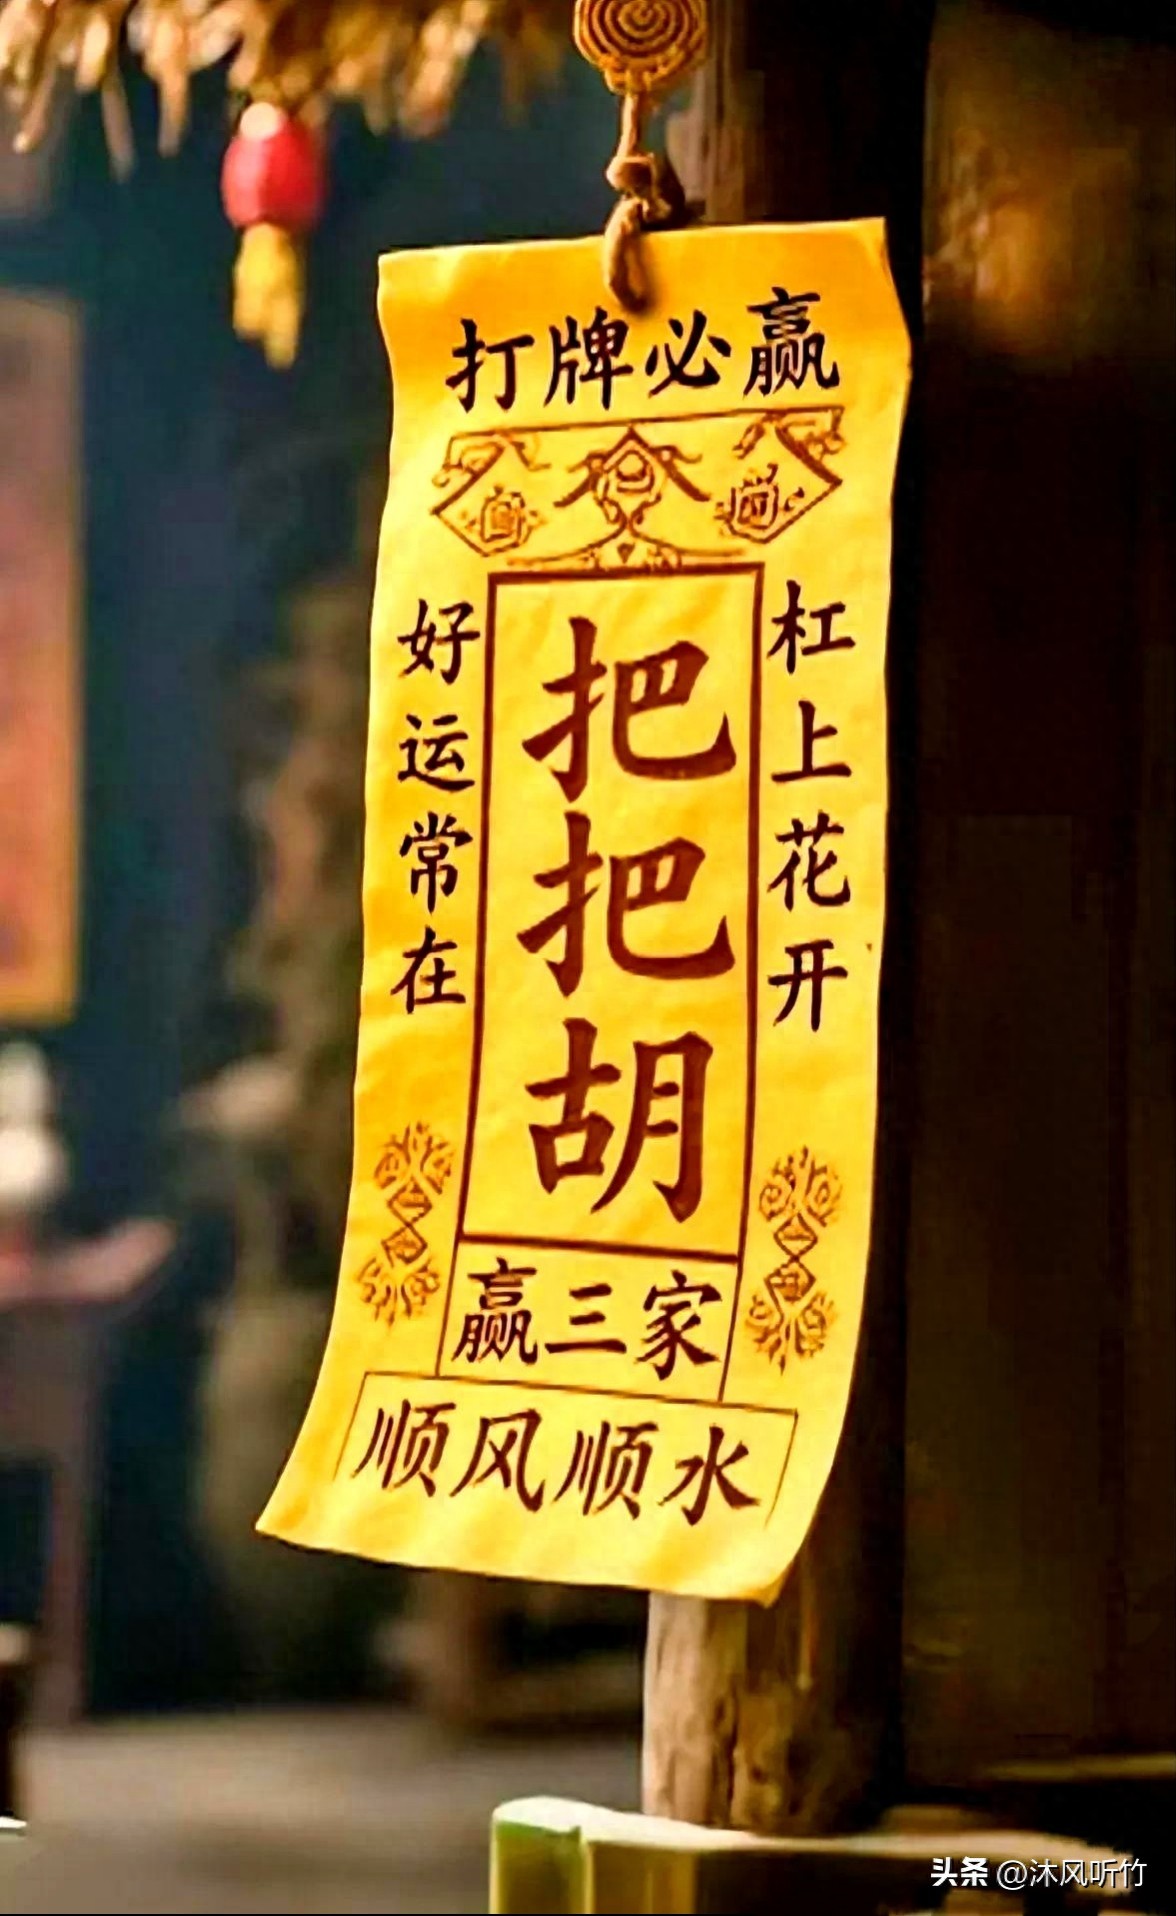 打牌必赢
杠上花开
把把胡
好运常在
赢三家
顺风顺水
头条 @沐风听竹